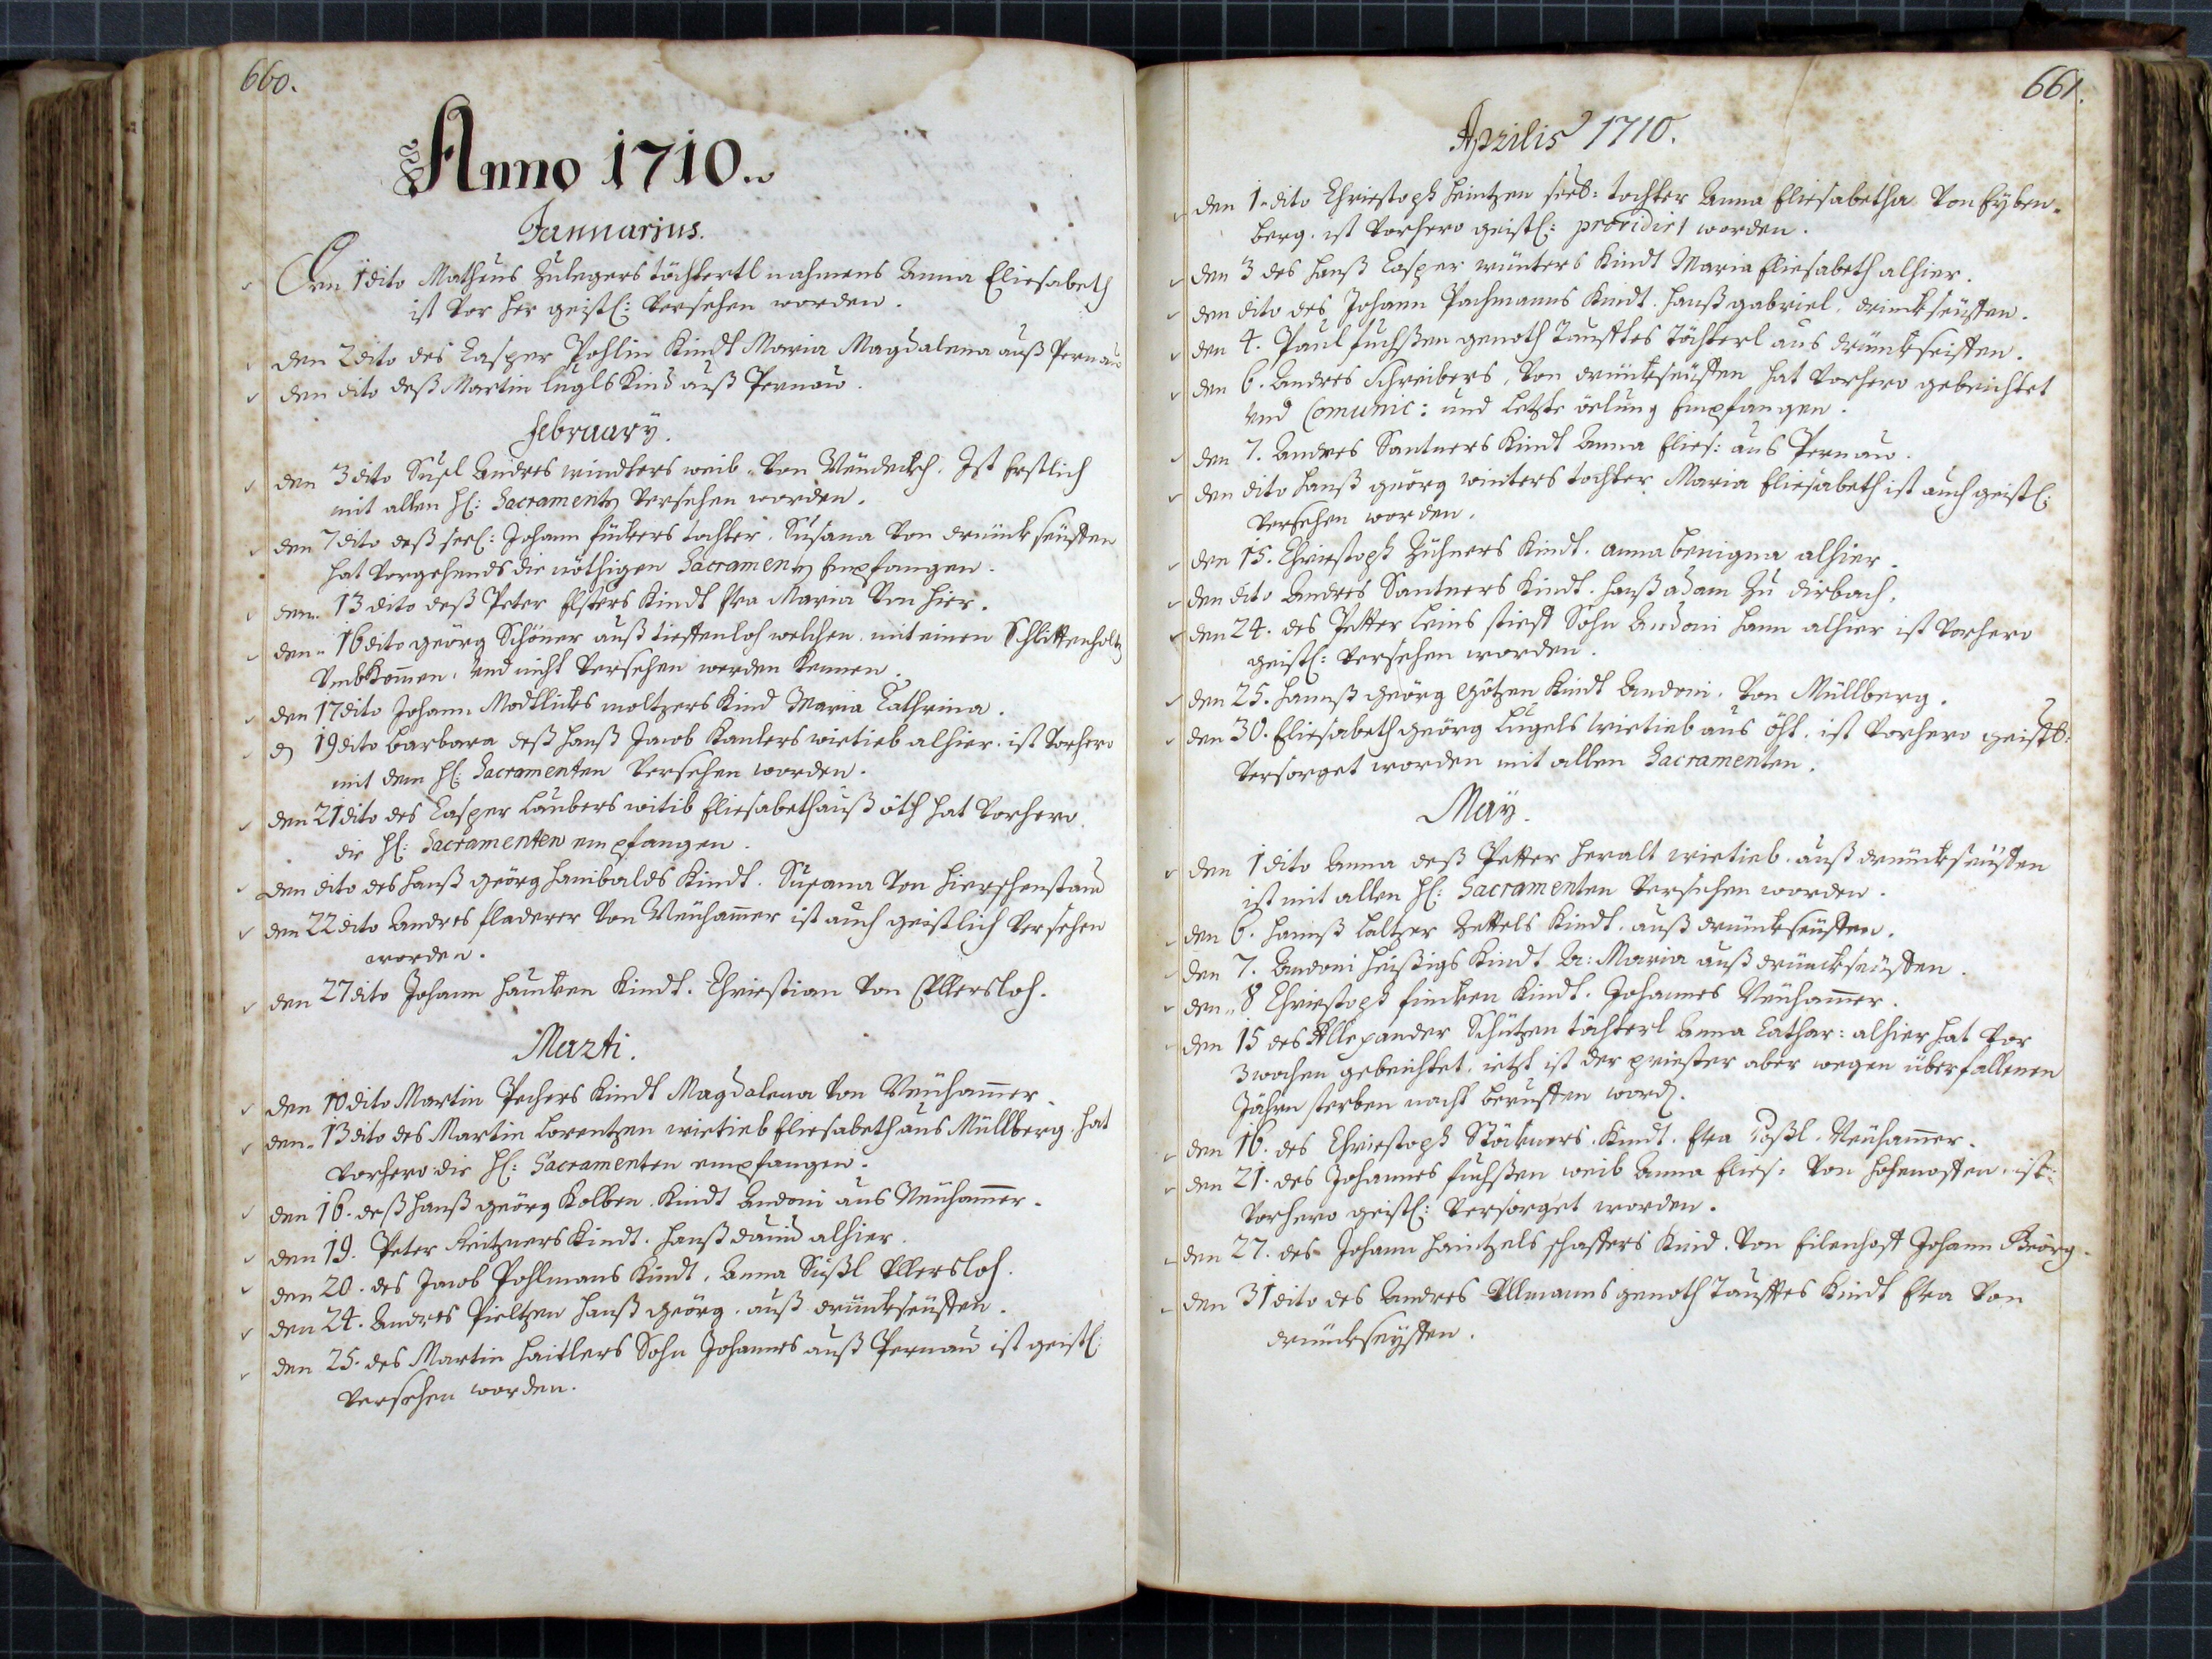 660.
Anno 1710.
Januarius.
Den 1 dito Matheus Zulegers töchterl nahmens Anna Eliesabeth
ist Vor her geistl: Versehen worden.
den 2 dito des Casper Pohlin Kindt Maria Magdalena auß Pernau
den dito deß Martin lugls Kind auß Pernau.
february.
den 3 dito Susl Andres windters weib. Von Ist Erstlich
mit allen hl: Sacramenty Versehen worden.
den 7 dito deß seel: Johann finkers tochter. Susana Von drünckseüffen
hat Vorgehends die nöthigen Sacramenty Empfangen.
den 13 dito deß Peter Elsters Kindt Eva Maria Von hier.
den 16 dito geörg Schöner auß tieffenloh welcher mit einen Schlittenholtz
Vmbkomen. Vnd nicht Versehen werden kennen.
den 17 dito Johann Kind Maria Cathrina.
d 19 dito barbara deß Hanß Jacob Kanters wietieb alhier. ist Vorhero
mit dem hl: Sacramenten Versehen worden.
den 21 dito des Casper Laubers witib Eliesabeth auß öth hat Vorhero
die hl: Sacramenten empfangen.
den dito des Hanß geörg Hanibalds Kindt. Susana Von Hierschenstand
den 22 dito Andres fladerer Von Neuhamer ist auch geistlich Versehen
worden.
den 27 dito Johann Kindt. Christian Von Ullersloh.
Marti.
den 10 dito Martin Pechers Kindt Magdalena Von Neuhamer.
den 13 dito des Martin Lorentzen wietieb Eliesabeth aus Müllberg. hat
Vorhero die hl: Sacramenten empfangen.
den 16. deß Hanß geörg Kolben Kindt Andoni aus Neuhamer.
den 19. Peter Kindt. Hanß david alhier.
den 20. des Jacob Pohlmans Kindt. Anna Susl Ullersloh.
den 24. Andres Pieltzen Hanß geörg. auß drünckseüffen.
den 25. des Martin Haiders Sohn Johannes auß Pernau ist geistl:
Versehen worden.
661.
Aprilis 1710.
den 1 dito Christoph Heintzen seel: tochter Anna Eliesabetha Von Eyben-
berg. ist Vorhero geistl: providirt worden.
den 3 des Hanß Casper wünters Kindt Maria Eliesabeth alhier.
den dito des Johann Pachmanns Kindt. Hanß gabriel. drinckseüffen.
den 4. Paul fuchßen genoth Taufftes Töchterl aus drünckseiffen.
den 6. Andres Schreibers, Von drünckseüffen hat Vorhero gebeichtet
Vnd Comunic: und Letzte öelung Empfangen.
den 7. Andres Santners Kindt Anna Elies: aus Pernau.
den dito Hanß geörg winters tochter Maria Eliesabeth ist auch geistl:
Versehen worden.
den 15. Christoph Kindt. anna benigna alhier.
den dito Andres Santners Kindt. Hanß adam Zu dirbach.
den 24. des Petter Leins stieff Sohn Andoni Hann alhier ist Vorhero
geistl: Versehen worden.
den 25. Hannß geörg Götzen Kindt Andoni. Von Müllberg.
den 30. Eliesabeth geörg Lugels wietieb aus öht. ist Vorhero geistl:
Versorget worden mit allen Sacramenten.
May.
den 1 dito Anna deß Petter Heralt wietieb. auß drünckseüffen
ist mit allen hl: Sacramenten Versehen worden.
den 6. Hannß baltzer Zettels Kindt. auß drünckseüffen.
den 7. Andoni Heußigs Kindt A: Maria auß drünckseüffen.
den 8 Christoph fincken Kindt. Johannes Neuhamer.
den 15 des Allexander Schützen töchterl Anna Cathar: alhier hat Vor
3 wochen gebeichtet. ietzt ist der priester aber wegen überfallenen
Jähen sterben nacht beruffen word.
den 16. des Christoph Stöckners Kindt. Eva Roßl. Neuhamer.
den 21. des Johannes fuchßen weib Anna Elies: Von Hohenoffen. ist
Vorhero geistl: Versorget worden.
den 27. des Johann Haintzels schaffers Kind. Von Eilenhoff Johann Geörg.
den 31 dito des Andres Ullmanns genoth Tauffes Kindt Eva Von
drünckseyffen.